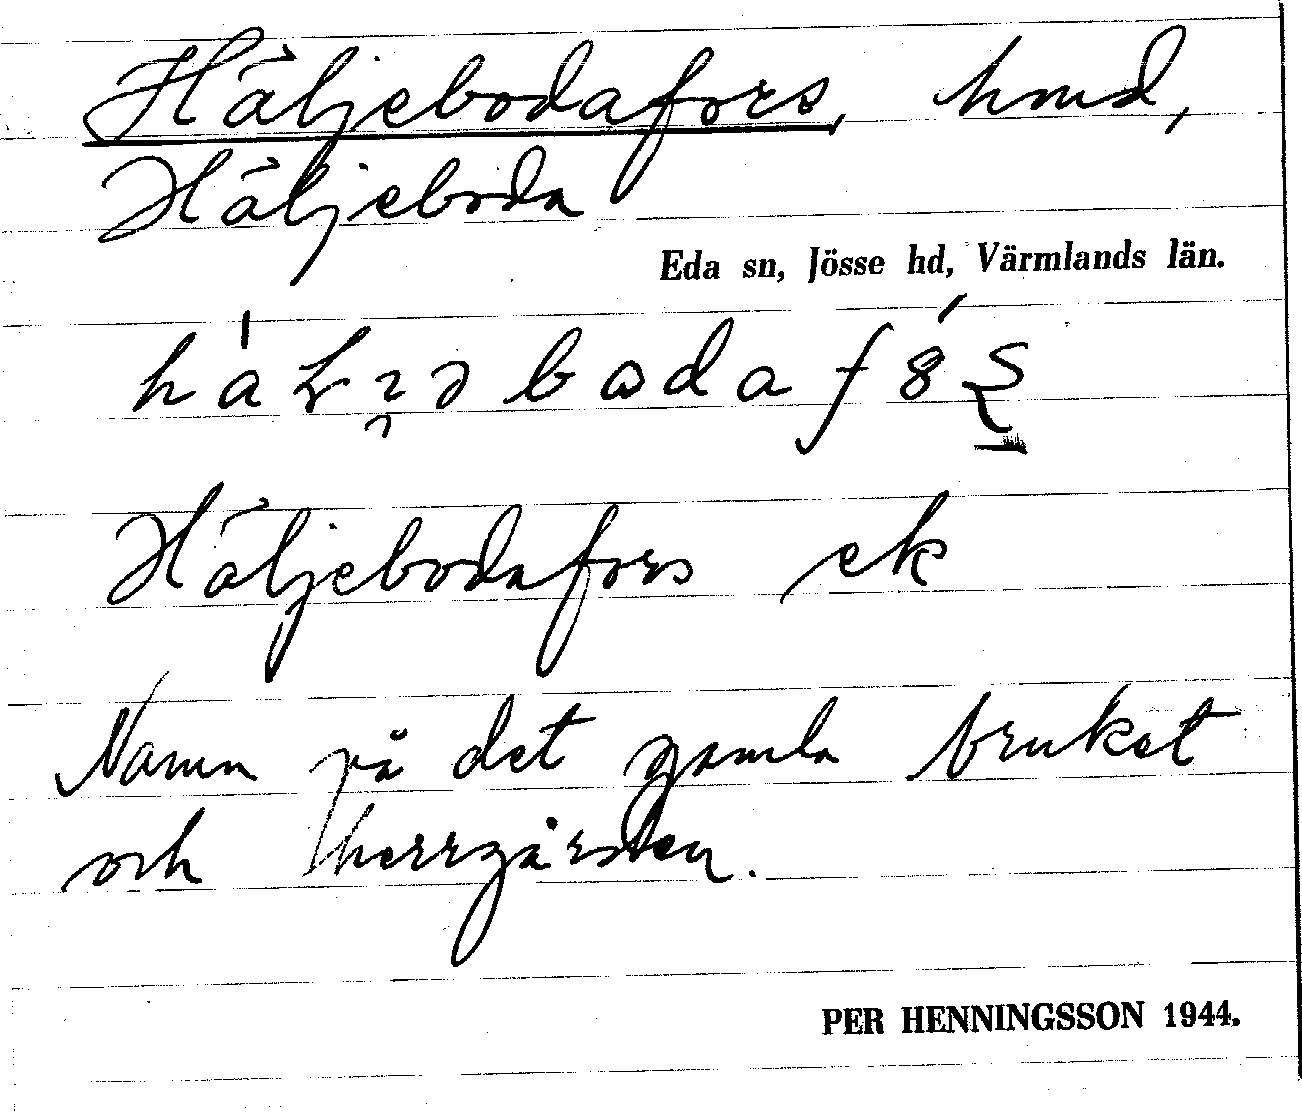 Häljebodafors, hmd,
Häljeboda
Eda sn, Jösse hd, Värmlands län.
Häljebodafors ek
Namn på det gamla bruket
och herrgården.
PER HENNINGSSON 1944.